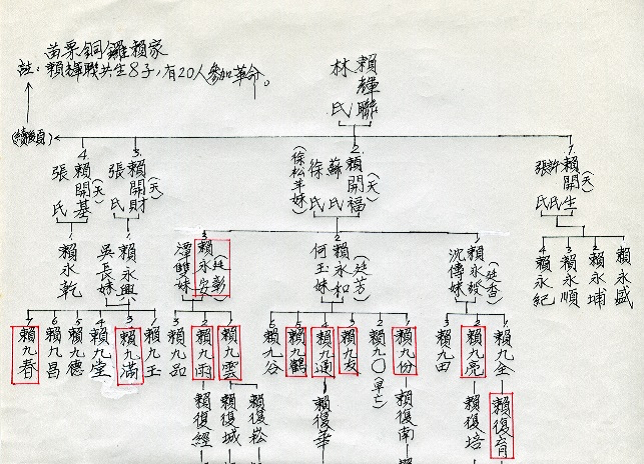 苗栗銅鑼賴家
註：賴輝聯共生8子，有20人參加革命。
賴輝聯
林氏
(續後頁)
1.
賴開生
(天)
許氏
張氏
2.
賴開福
(天)
蘇氏
徐氏
(徐松羊妹)
3.
賴開財
(天)
張氏
4
賴開基
(天)
張氏
賴永盛
2 賴永埔
3 賴永順
4 賴永紀
賴永經
沈傳妹
2
賴永和
(廷芳)
何玉妹
3
賴永安
(廷彰)
潭雙妹
賴永興
吳長妹
賴永乾
賴九全
2 賴九亮
3 賴九田
賴九份
2 賴九〇(早亡)
3 賴九友
4 賴九通
5 賴九鶴
6 賴九谷
賴九雲
2 賴九雨
3 賴九品
賴九玉
3 賴九滿
4 賴九堂
5 賴九德
6 賴九昌
7 賴九春
賴復育
賴復培
賴復南
賴復華
賴復崧
賴復城
賴復經